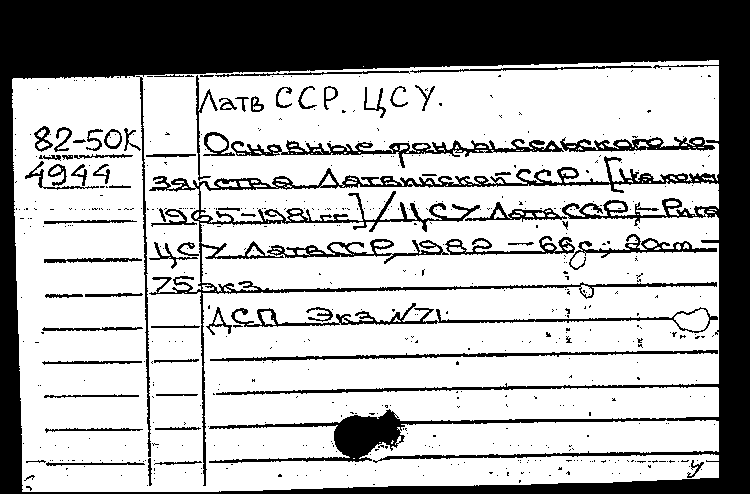 Латв ССР. ЦСУ.
82-50К Основные фонды сельского хо-
4944 зяйства Латвийской ССР: [На конец
1965-1981 гг] / ЦСУ ЛатвССР, - Рига
ЦСУ ЛатвССР, 1982 - 66с.; 20cm -
75 экз.
ДСП Экз N71